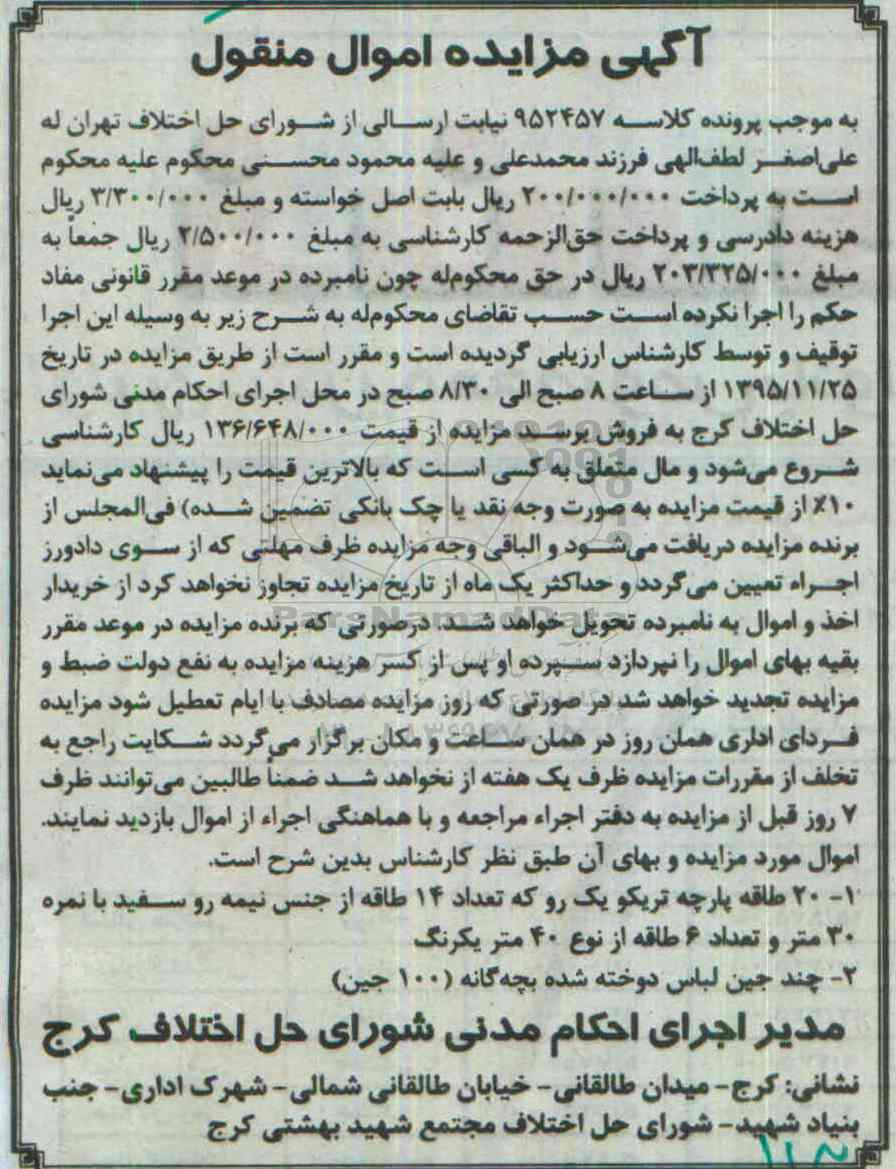 آگهی مزایده اموال منقول
به موجب پرونده کلاسه ۹۵۲۴۵۷ نیابت ارسالی از شورای حل اختلاف تهران له
علی‌اصغر لطف‌الهی فرزند محمدعلی و علیه محمود محسنی محکوم علیه محکوم
است به پرداخت ۲۰۰/۰۰۰/۰۰۰ ریال بابت اصل خواسته و مبلغ ۳/۳۰۰/۰۰۰ ریال
هزینه دادرسی و پرداخت حق‌الزحمه کارشناسی به مبلغ ۲/۵۰۰/۰۰۰ ریال جمعاً به
مبلغ ۲۰۳/۳۲۵/۰۰۰ ریال در حق محکوم‌له چون نامبرده در موعد مقرر قانونی مفاد
حکم را اجرا نکرده است حسب تقاضای محکوم‌له به شرح زیر به وسیله این اجرا
توقیف و توسط کارشناس ارزیابی گردیده است و مقرر است از طریق مزایده در تاریخ
۱۳۹۵/۱۱/۲۵ از ساعت ۸ صبح الی ۸/۳۰ صبح در محل اجرای احکام مدنی شورای
حل اختلاف کرج به فروش برسد مزایده از قیمت ۱۳۶/۶۴۸/۰۰۰ ریال کارشناسی
شروع می‌شود و مال متعلق به کسی است که بالاترین قیمت را پیشنهاد می‌نماید
۱۰٪ از قیمت مزایده به صورت وجه نقد یا چک بانکی تضمین شده) فی‌المجلس از
برنده مزایده دریافت می‌شود و الباقی وجه مزایده ظرف مهلتی که از سوی دادورز
اجراء تعیین می‌گردد و حداکثر یک ماه از تاریخ مزایده تجاوز نخواهد کرد از خریدار
اخذ و اموال به نامبرده تحویل خواهد شد. درصورتی که برنده مزایده در موعد مقرر
بقیه بهای اموال را نپردازد سپرده او پس از کسر هزینه مزایده به نفع دولت ضبط و
مزایده تجدید خواهد شد در صورتی که روز مزایده مصادف با ایام تعطیل شود مزایده
فردای اداری همان روز در همان ساعت و مکان برگزار می‌گردد شکایت راجع به
تخلف از مقررات مزایده ظرف یک هفته از نخواهد شد ضمناً طالبین می‌توانند ظرف
۷ روز قبل از مزایده به دفتر اجراء مراجعه و با هماهنگی اجراء از اموال بازدید نمایند.
اموال مورد مزایده و بهای آن طبق نظر کارشناس بدین شرح است.
۱- ۲۰ طاقه پارچه تریکو یک رو که تعداد ۱۴ طاقه از جنس نیمه رو سفید با نمره
۳۰ متر و تعداد ۶ طاقه از نوع ۴۰ متر یکرنگ
۲- چند جین لباس دوخته شده بچه‌گانه (۱۰۰ جین)
مدیر اجرای احکام مدنی شورای حل اختلاف کرج
نشانی: کرج- میدان طالقانی- خیابان طالقانی شمالی- شهرک اداری- جنب
بنیاد شهید- شورای حل اختلاف مجتمع شهید بهشتی کرج
ParsNamadData